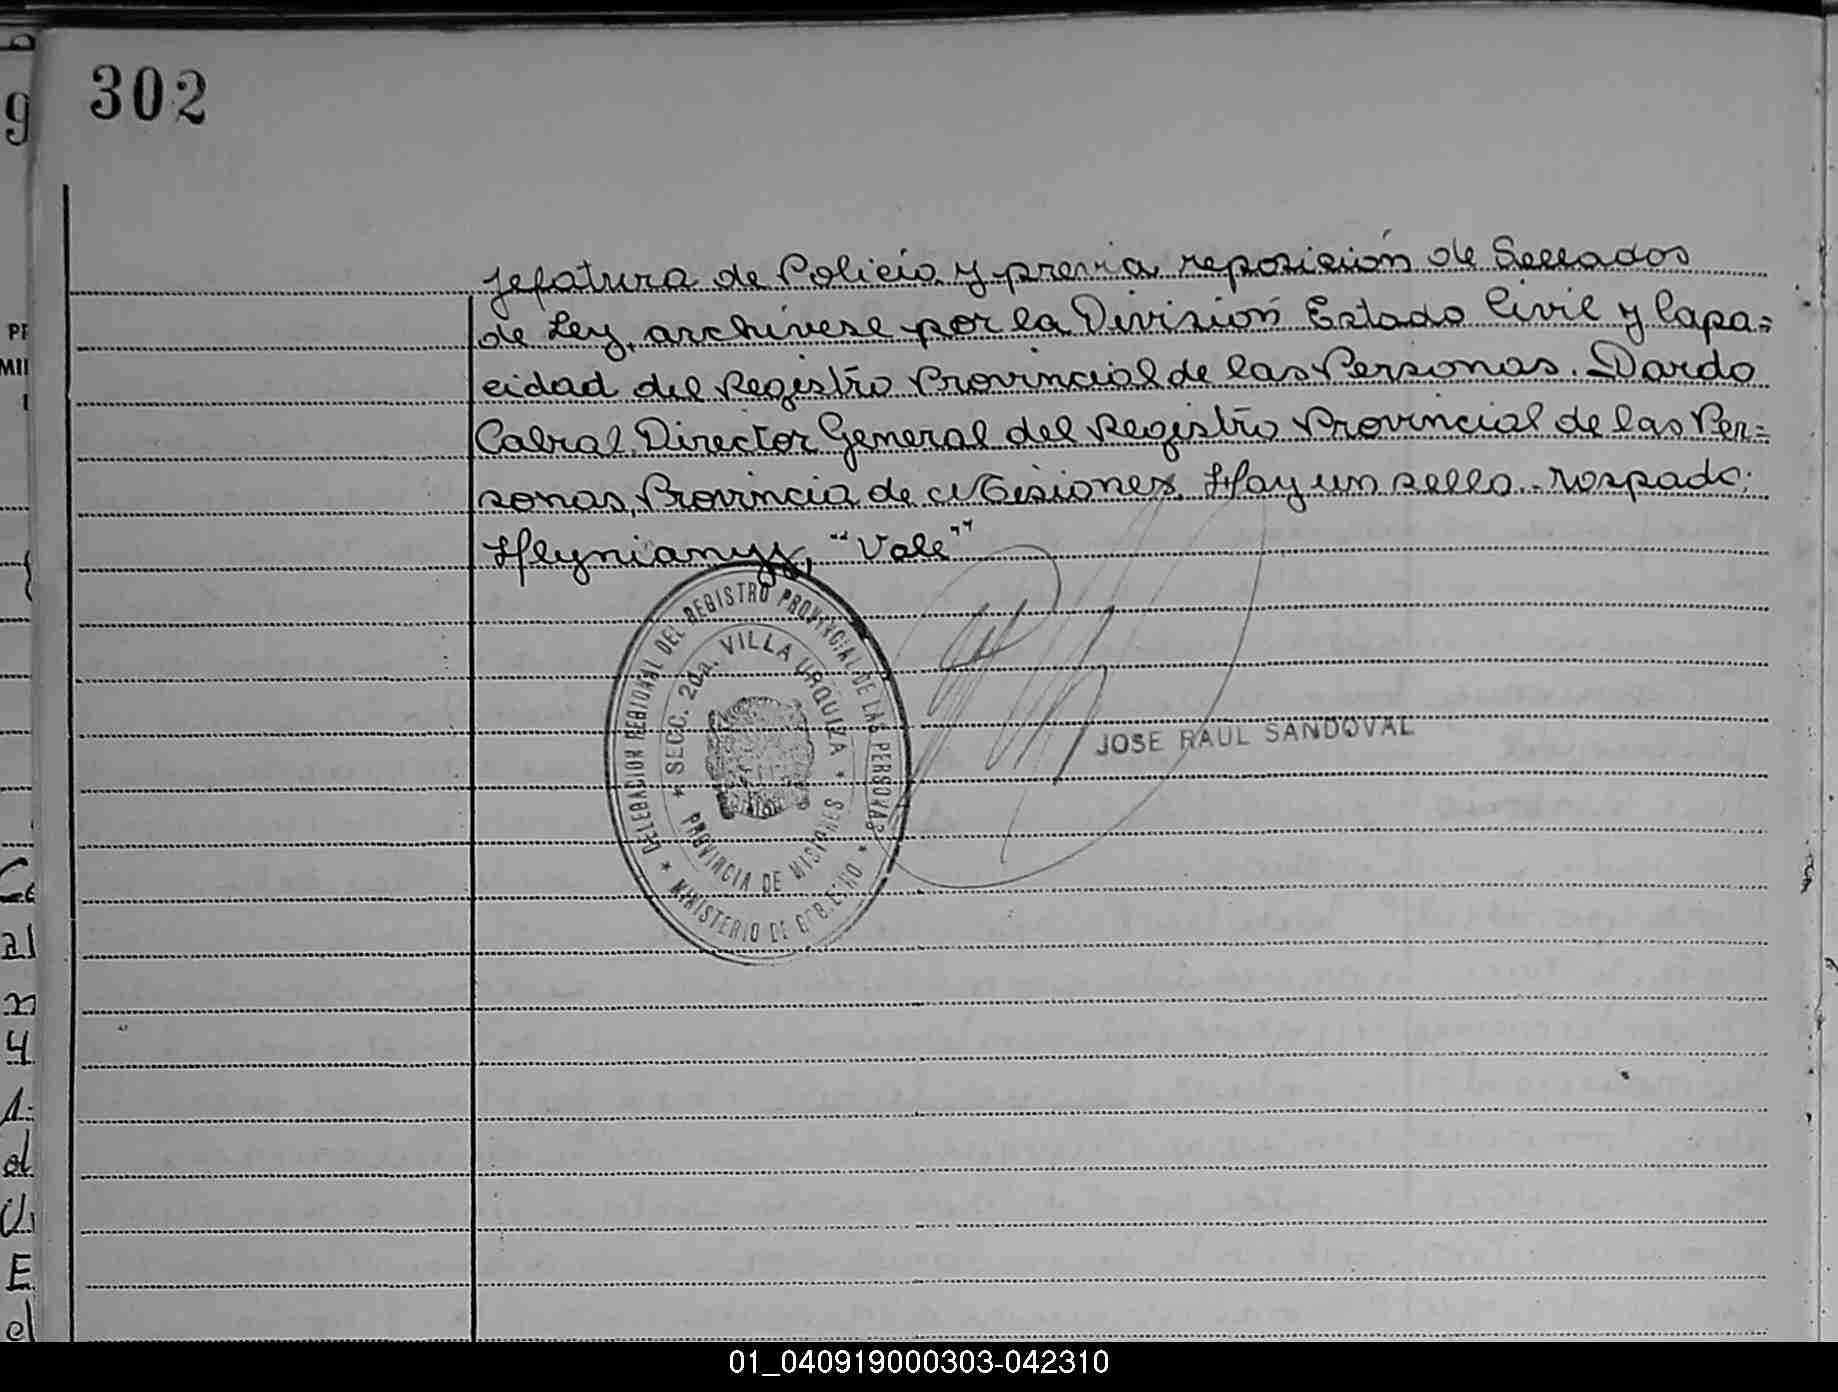 302
Jefatura de Policía y previa reposición de Sellados
de Ley, archívese por la División Estado Civil y Capa=
cidad del Registro Provincial de las Personas. Dardo
Cabral. Director General del Registro Provincial de las Per=
sonas, Provincia de Misiones. Hay un sello.- Rospado:
Hlynianyj, "Vale"
DELEGACION REGIONAL DEL REGISTRO PROVINCIAL DE LAS PERSONAS
* MINISTERIO DE GOBIERNO *
* SECC. 2da. VILLA URQUIZA *
PROVINCIA DE MISIONES
JOSE RAUL SANDOVAL
01_040919000303-042310